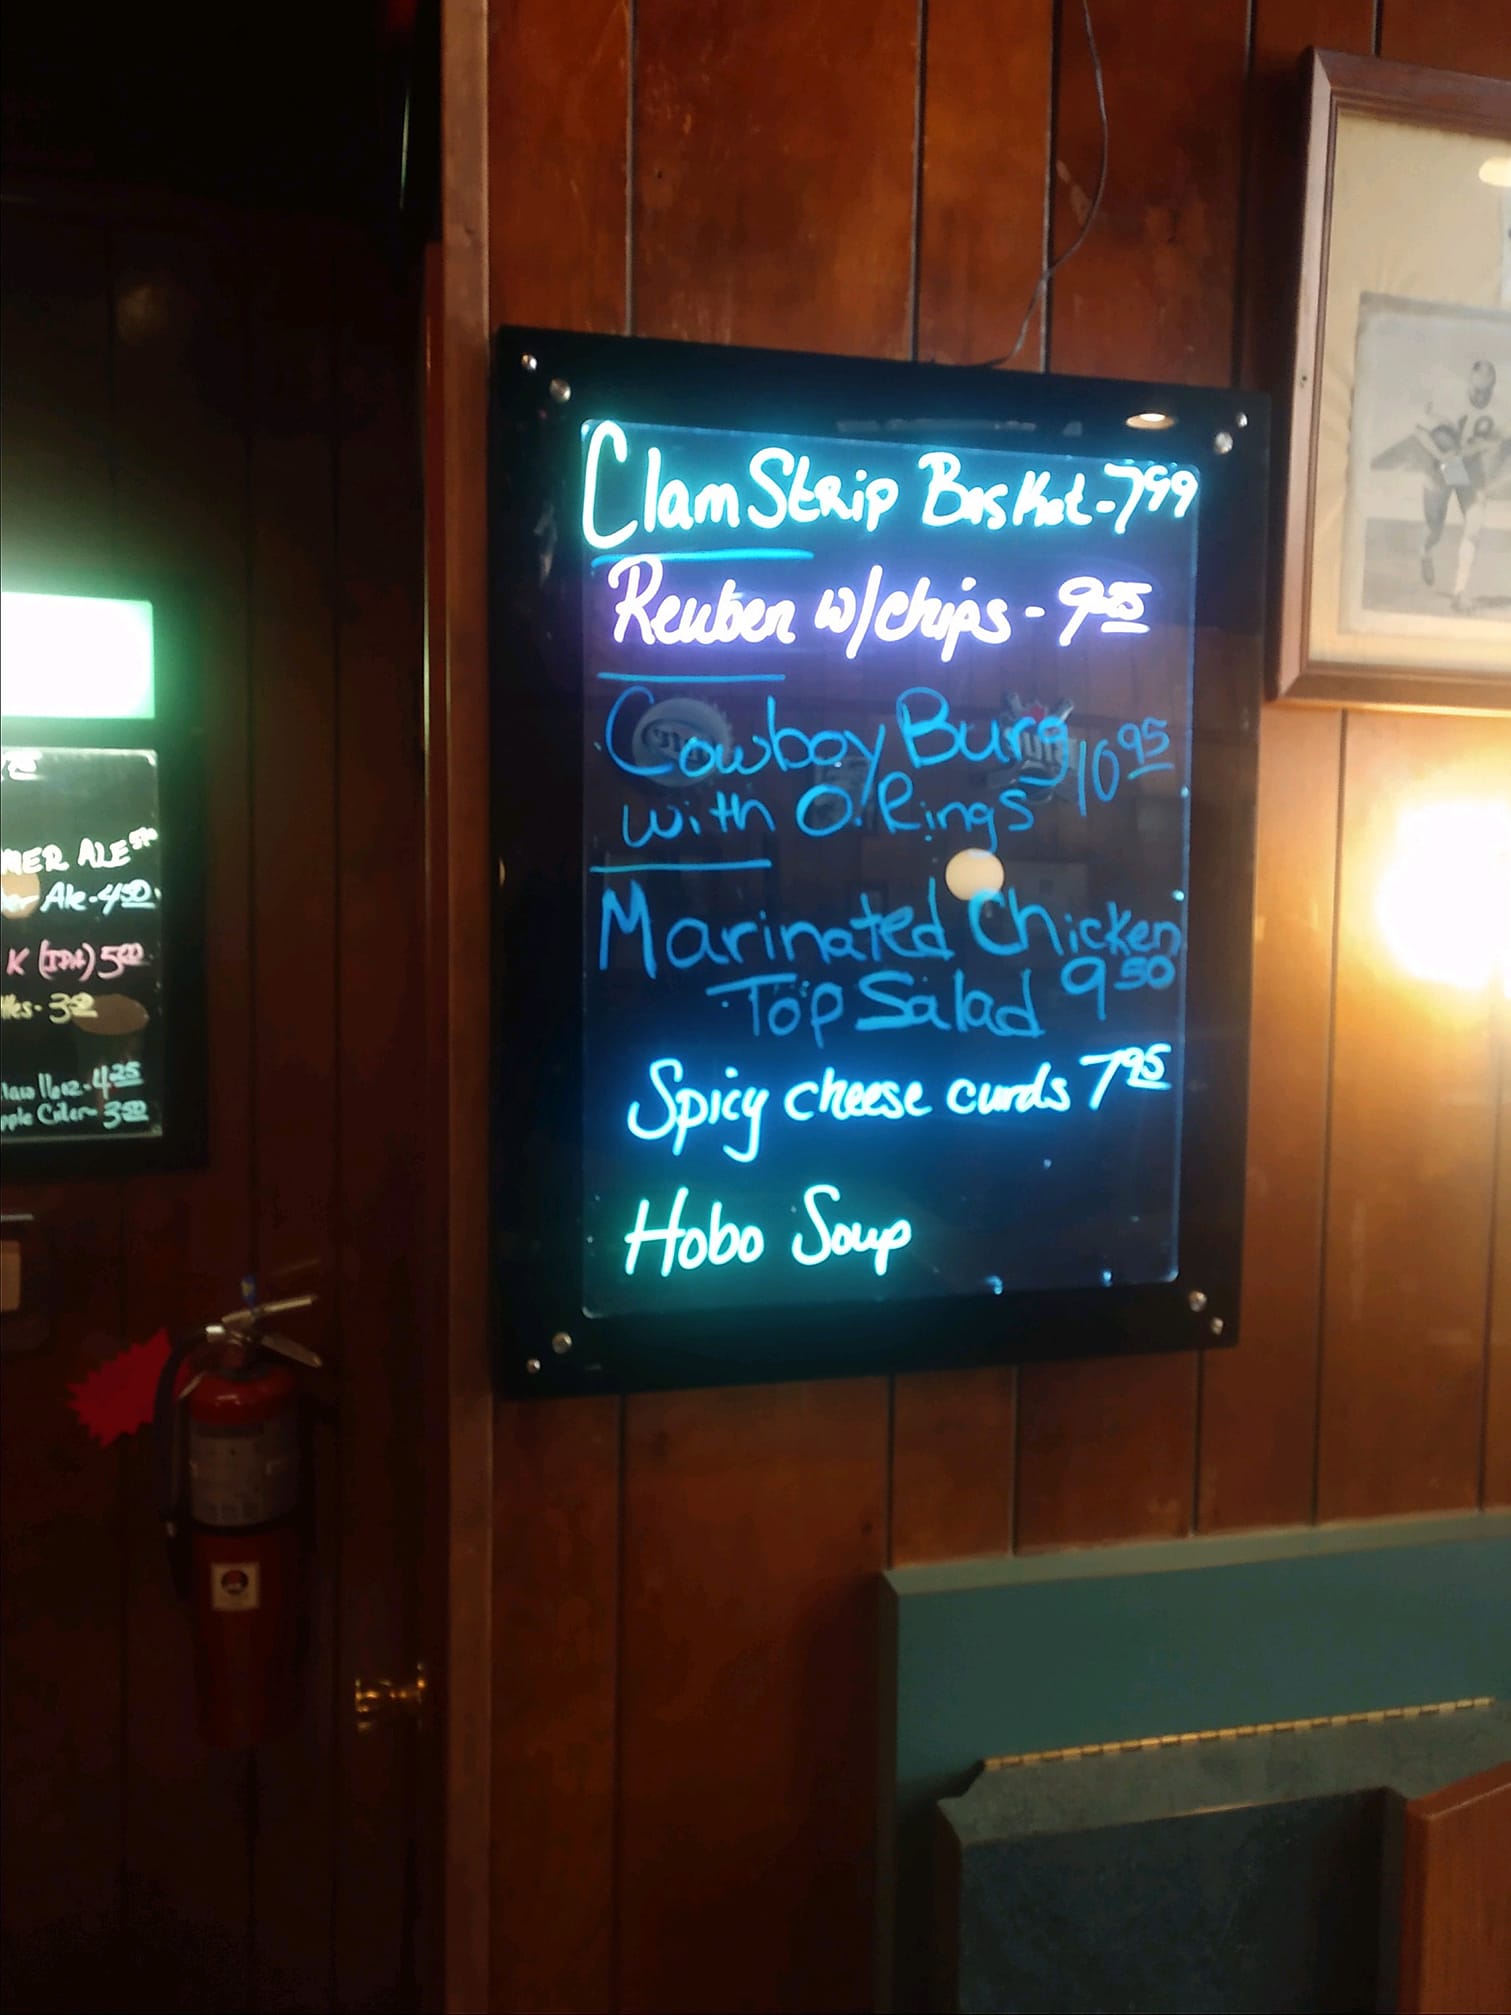 Clam Strip Basket-7 99
Reuben w/chips - 9 25
Cowboy Burg 10 95
with O. Rings
Marinated Chicken
Top Salad 9 50
Spicy cheese curds 7 95
Hobo Soup
NER ALE
Ale-4 50
K (IPA) 5 00
3 50
16oz-4 25
Cider- 3 50